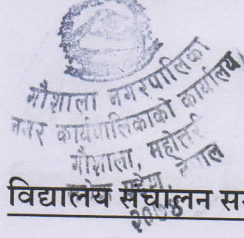 गौशाला नगरपालिका
नगर कार्यपालिकाको कार्यालय,
गौशाला, महोत्तरी
प्रदेश, नेपाल
२०७४
विद्यालय संचालन